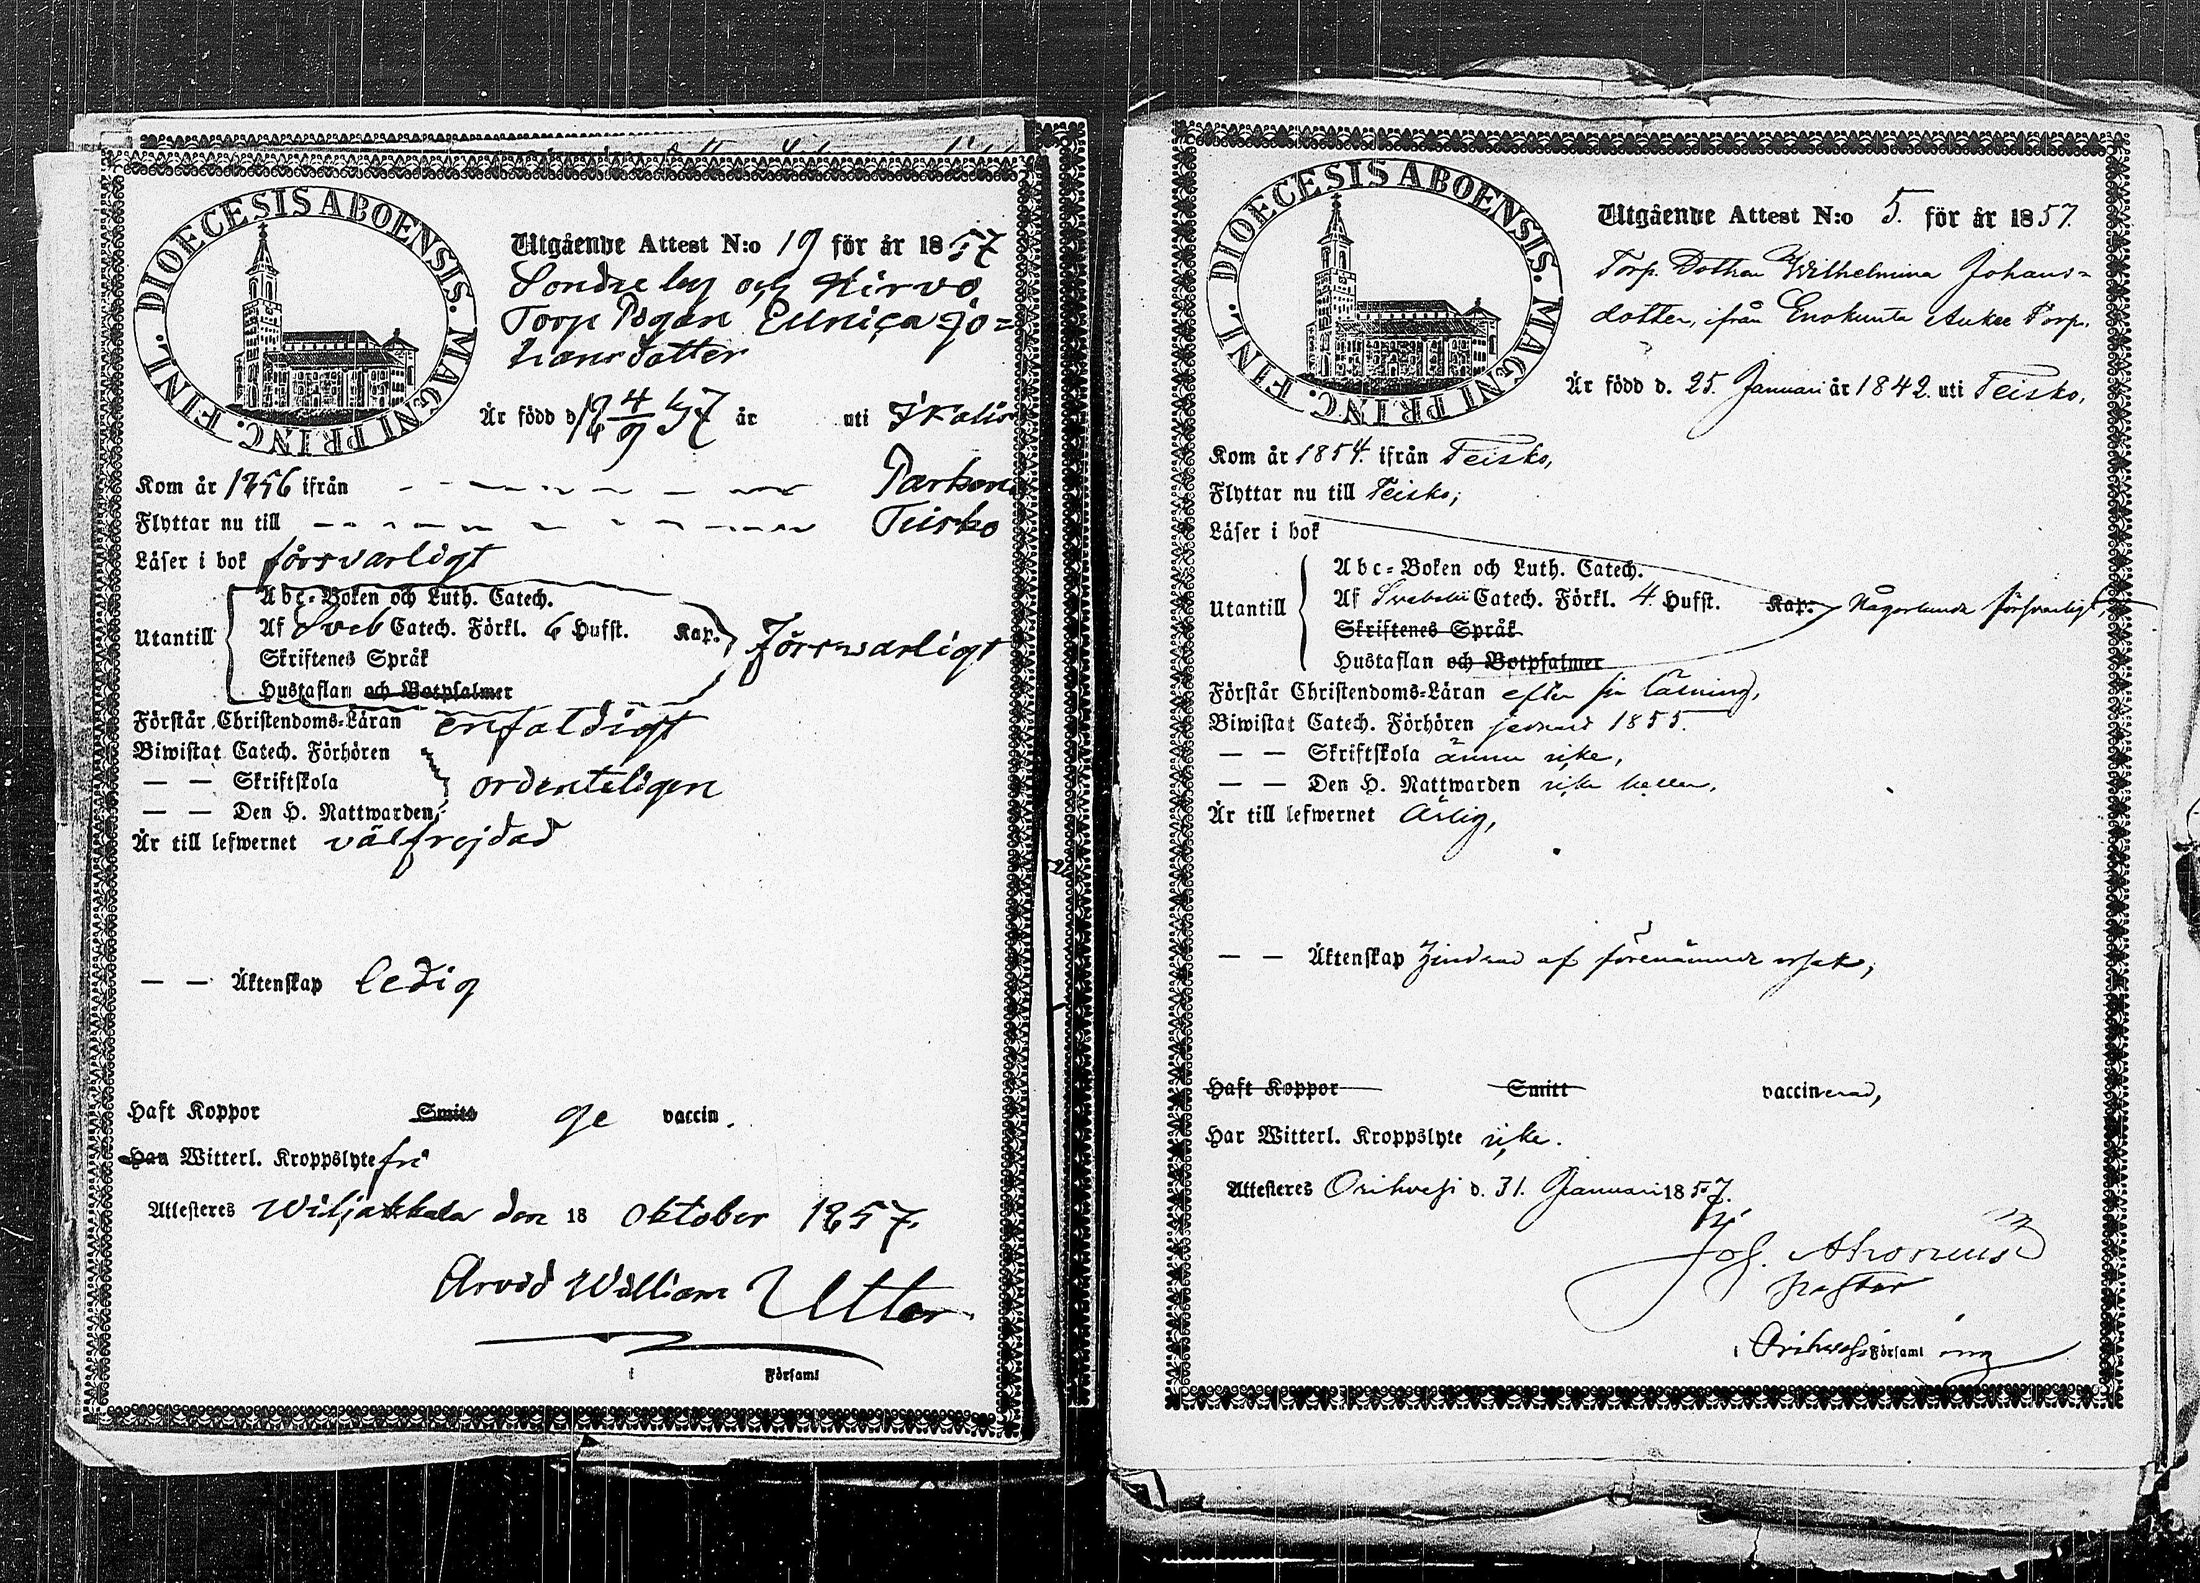 DIOECESIS ABOENSIS. MAGNI PRINC. FINL.
Utgående Attest N:o 19 för år 1857
Sondre by och Hirvo
Torp Pigan Eunica Jo=
hansdotter
Är född d 18 4/9 37 år uti Ikalis
Kom år 1856 ifrån Parkano
Flyttar nu till Teisko
Läser i bok försvarligt
Utantill
Abc-Boken och Luth. Catech.
Af Sveb Catech. Förkl. 6 Hufst. Kap. försvarligt
Skriftenes Språk
Hustaflan och Botpsalmer
Förstår Christendoms-Läran enfaldigt
Biwistat Catech. Förhören
— — Skriftskola ordenteligen
— — Den H. Nattwarden
Är till lefwernet välfrejdad
— — Äktenskap ledig
Haft Koppor Smitt ge vaccin.
Har Witterl. Kroppslyte fri
Attesteres Wiljakkala den 18 Oktober 1857.
Arvid William Utter
i Församl
DIOECESIS ABOENSIS. MAGNI PRINC. FINL.
Utgående Attest N:o 5. för år 1857.
Torp. Dottren Wilhelmina Johans=
dotter, ifrån Enokunta Aukee Torp.
Är född d. 25. Januari år 1842. uti Teisko,
Kom år 1854. ifrån Teisko,
Flyttar nu till Teisko;
Läser i bok
Utantill
Abc-Boken och Luth. Catech.
Af Svebelii Catech. Förkl. 4. Hufst. Kap. Någorlunda försvarligt,
Skriftenes Språk
Hustaflan och Botpsalmer
Förstår Christendoms-Läran efter sin läsning,
Biwistat Catech. Förhören 1855.
— — Skriftskola ännu icke,
— — Den H. Nattwarden icke heller,
Är till lefwernet Ärlig,
— — Äktenskap hindrad af förenämnde orsak;
Haft Koppor Smitt vaccinerad,
Har Witterl. Kroppslyte icke.
Attesteres Orihvesi d. 31. Januari 1857.
Joh. Ahonius
pastor
i Orihvesi Församl ing